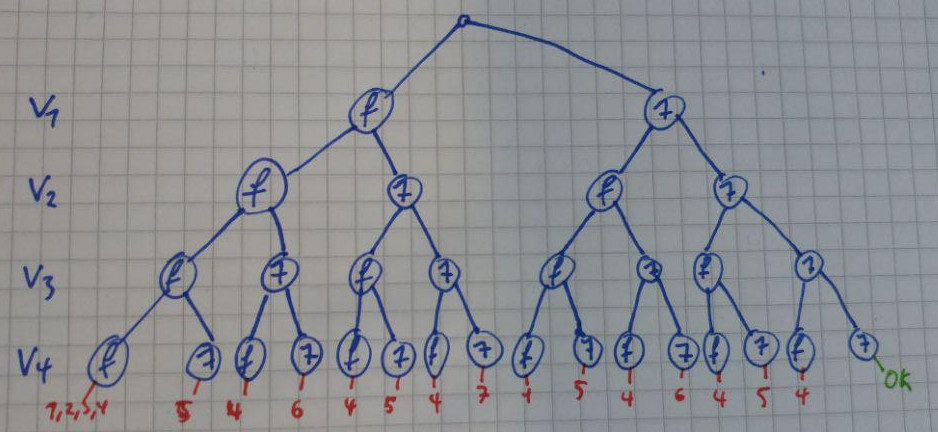 V1 f 7
V2 f 7 f 7
V3 f 7 f 7 f 7 f 7
V4 f 7 f 7 f 7 f 7 f 7 f 7 f 7 f 7
1,2,3,4 5 4 6 4 5 4 7 4 5 4 6 4 5 4 OK